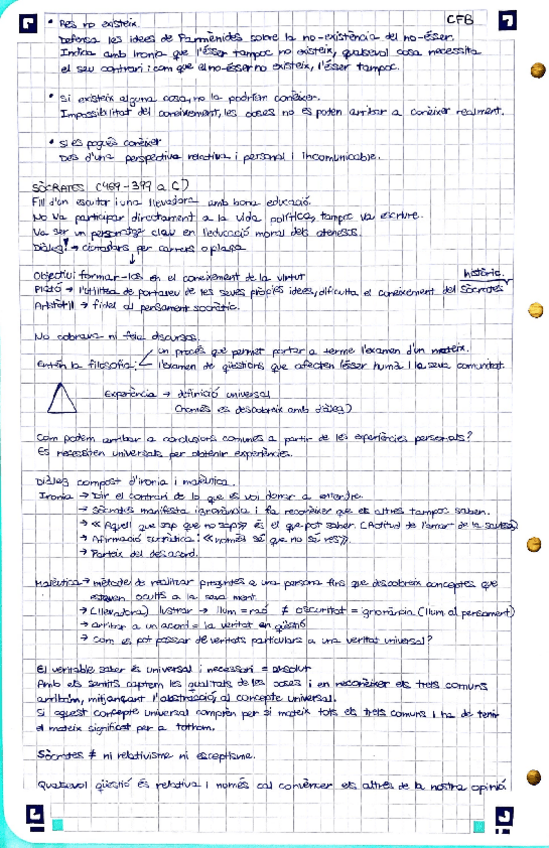 CFB
• Res no existeix
Defensa les idees de Parmènides sobre la no-existència del no-ésser.
Indica amb ironia que l'ésser tampoc no existeix, qualsevol cosa necessita
el seu contrari i com que el no-ésser no existeix, l'ésser tampoc.
• Si existeix alguna cosa, no la podríem conèixer.
Impossibilitat del coneixement, les coses no es poden arribar a conèixer realment.
• Si es pogués conèixer
Des d'una perspectiva relativa i personal i incomunicable.
SÒCRATES (469-399 a.C)
Fill d'un escultor i una llevadora amb bona educació.
No va participar directament a la vida política, tampoc va escriure.
Va ser un personatge clau en l'educació moral dels atenesos.
Diàleg! → ciutadans per carrers o plaça
Objectiu: formar-los en el coneixement de la virtut
històric.
Plató → l'utilitza de portaveu de les seves pròpies idees, dificulta el coneixement del Sòcrates
Aristòtil → fidel al pensament socràtic.
No cobrava ni feia discursos.
un procés que permet portar a terme l'examen d'un mateix.
Entén la filosofia: l'examen de qüestions que afecten l'ésser humà i la seva comunitat
Experiència → definició universal
(només es descobreix amb diàleg)
Com podem arribar a conclusions comunes a partir de les experiències personals?
Es necessiten universals per obtenir experiències.
Diàleg compost d'ironia i maièutica.
Ironia → Dir el contrari de lo que es vol donar a entendre.
→ Sòcrates manifesta ignorància i fa reconèixer que els altres tampoc saben.
→ «Aquell que sap que no sap» és el que pot saber. (Actitud de l'amor de la saviesa)
→ Afirmació socràtica: «només sé que no sé res».
→ Parteix del desacord.
Maièutica → mètode de realitzar preguntes a una persona fins que descobreix conceptes que
estaven ocults a la seva ment.
→ (llevadora) lustrar → llum = raó ≠ obscuritat = ignorància (llum al pensament)
→ arribar a un acord = la veritat en qüestió
→ com es pot passar de veritats particulars a una veritat universal?
El veritable saber és universal i necessari = absolut
Amb els sentits captem les qualitats de les coses i en reconèixer els trets comuns
arribem, mitjançant l'abstracció, al concepte universal.
Si aquest concepte universal comprèn per si mateix tots els trets comuns i ha de tenir
el mateix significat per a tothom.
Sòcrates ≠ ni relativisme ni escepticisme.
Qualsevol qüestió és relativa i només cal convèncer els altres de la nostra opinió